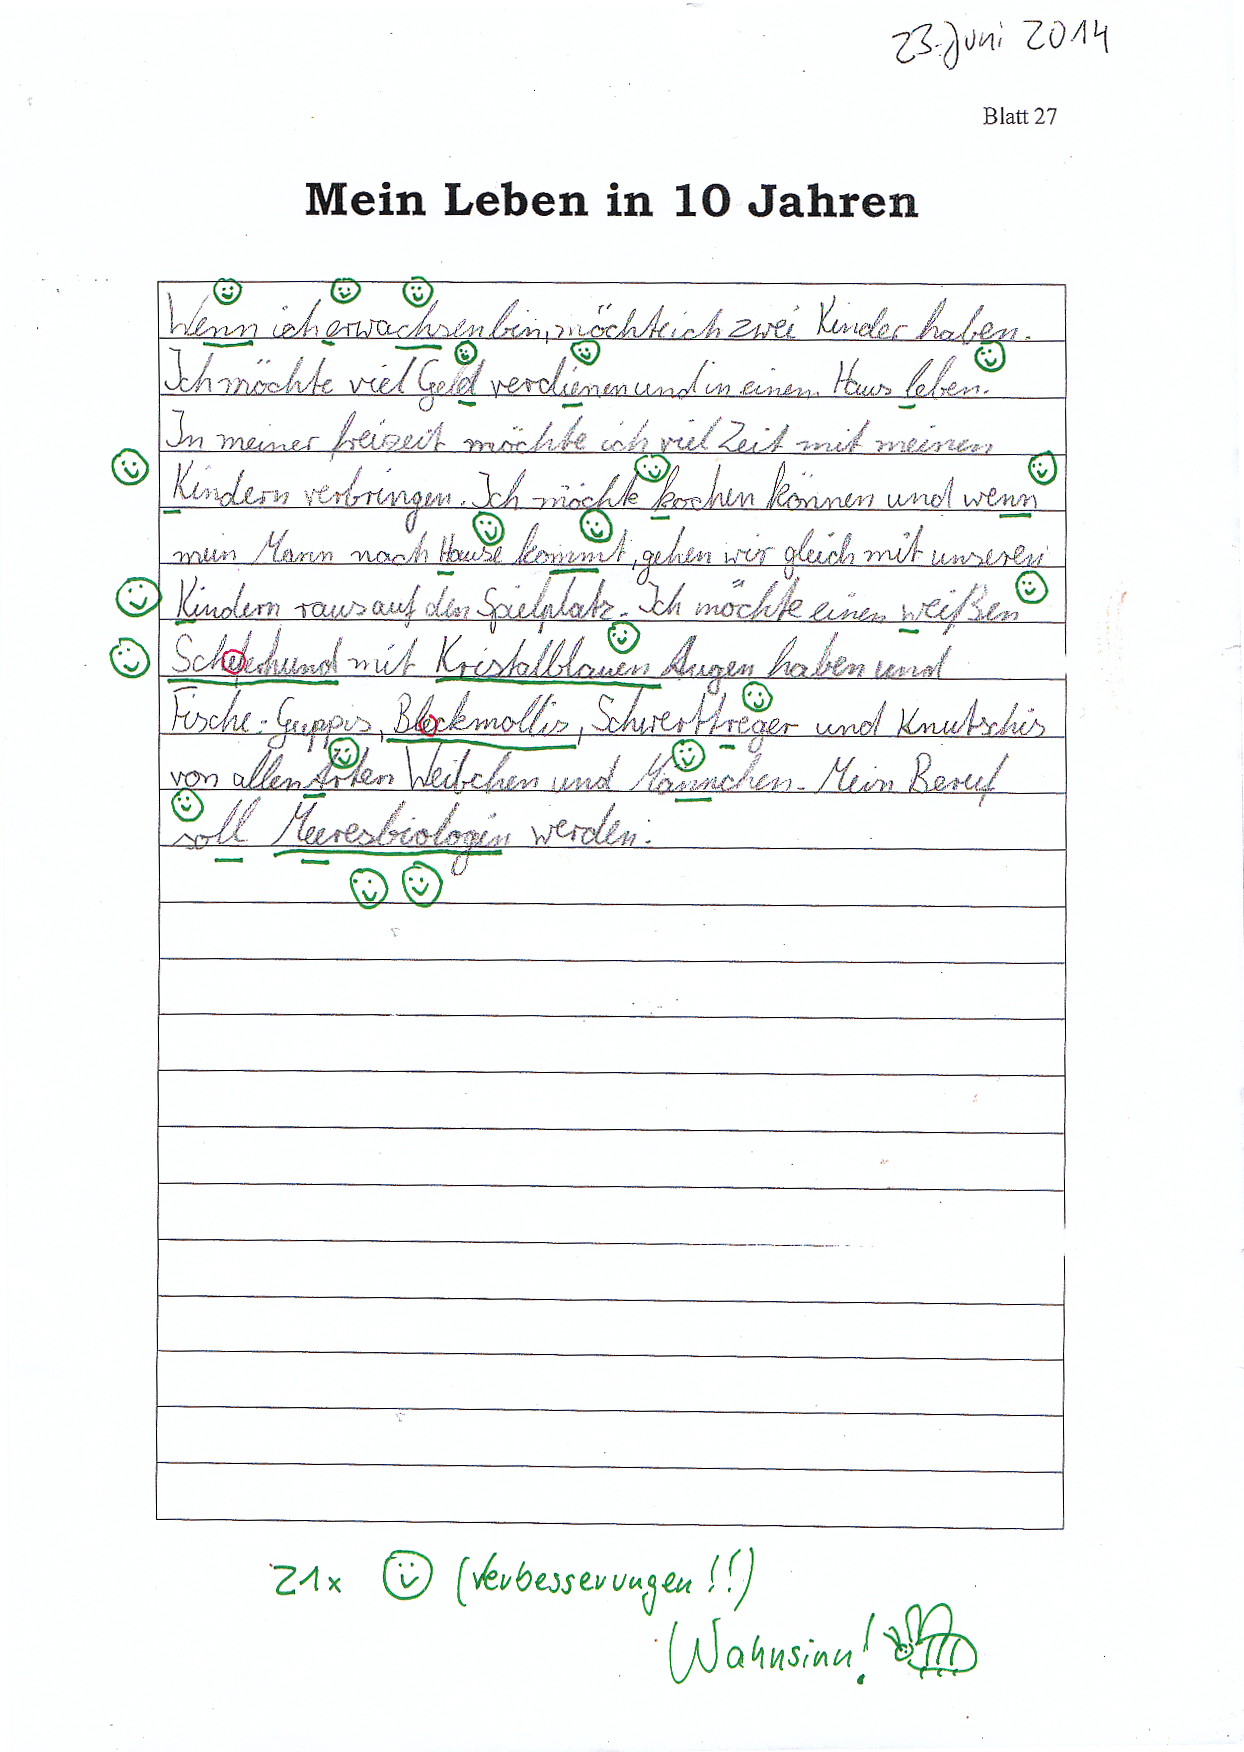 23. Juni 2014
Blatt 27
Mein Leben in 10 Jahren
Wenn ich erwachsen bin, möchte ich zwei Kinder haben.
Ich möchte viel Geld verdienen und in einem Haus leben.
In meiner freizeit möchte ich viel Zeit mit meinen
Kindern verbringen. Ich möchte kochen können und wenn
mein Mann nach Hause kommt, gehen wir gleich mit unseren
Kindern raus auf den Spielplatz. Ich möchte einen weißen
mit Kristalblauen Augen haben und
Fische: Guppis, Bleckmollis, Schwerttreger und Knutschis
von allen Arten Weibchen und Männchen. Mein Beruf
soll Meeresbiologin werden.
21x (Verbesserungen!!)
Wahnsinn!